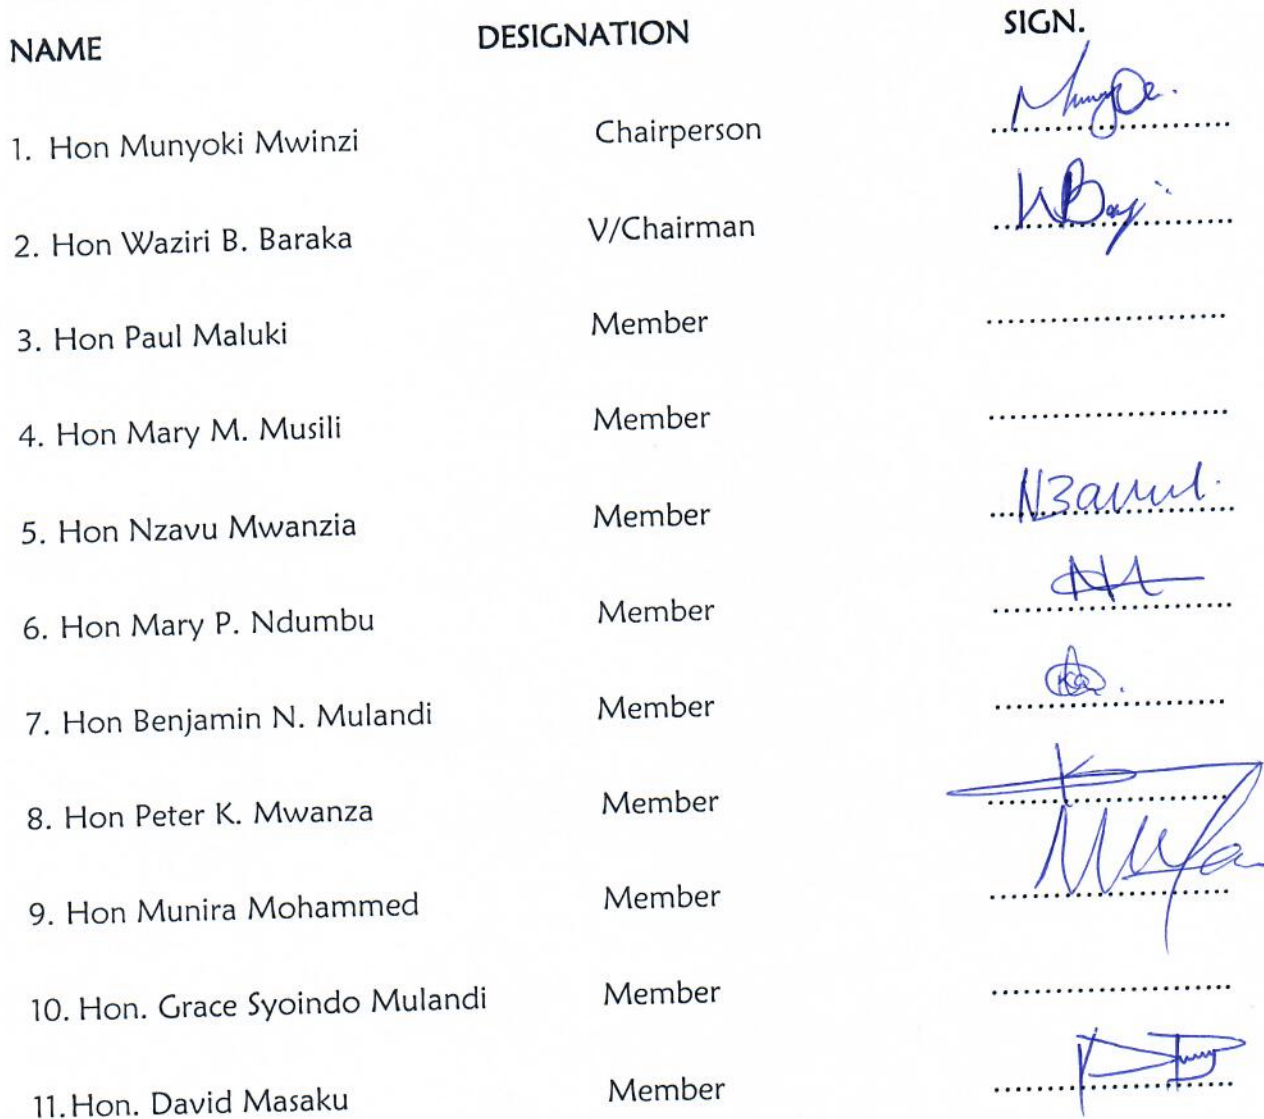 NAME DESIGNATION SIGN.
1. Hon Munyoki Mwinzi Chairperson ........................
2. Hon Waziri B. Baraka V/Chairman ........................
3. Hon Paul Maluki Member ........................
4. Hon Mary M. Musili Member ........................
5. Hon Nzavu Mwanzia Member ........................
6. Hon Mary P. Ndumbu Member ........................
7. Hon Benjamin N. Mulandi Member ........................
8. Hon Peter K. Mwanza Member ........................
9. Hon Munira Mohammed Member ........................
10. Hon. Grace Syoindo Mulandi Member ........................
11. Hon. David Masaku Member ........................